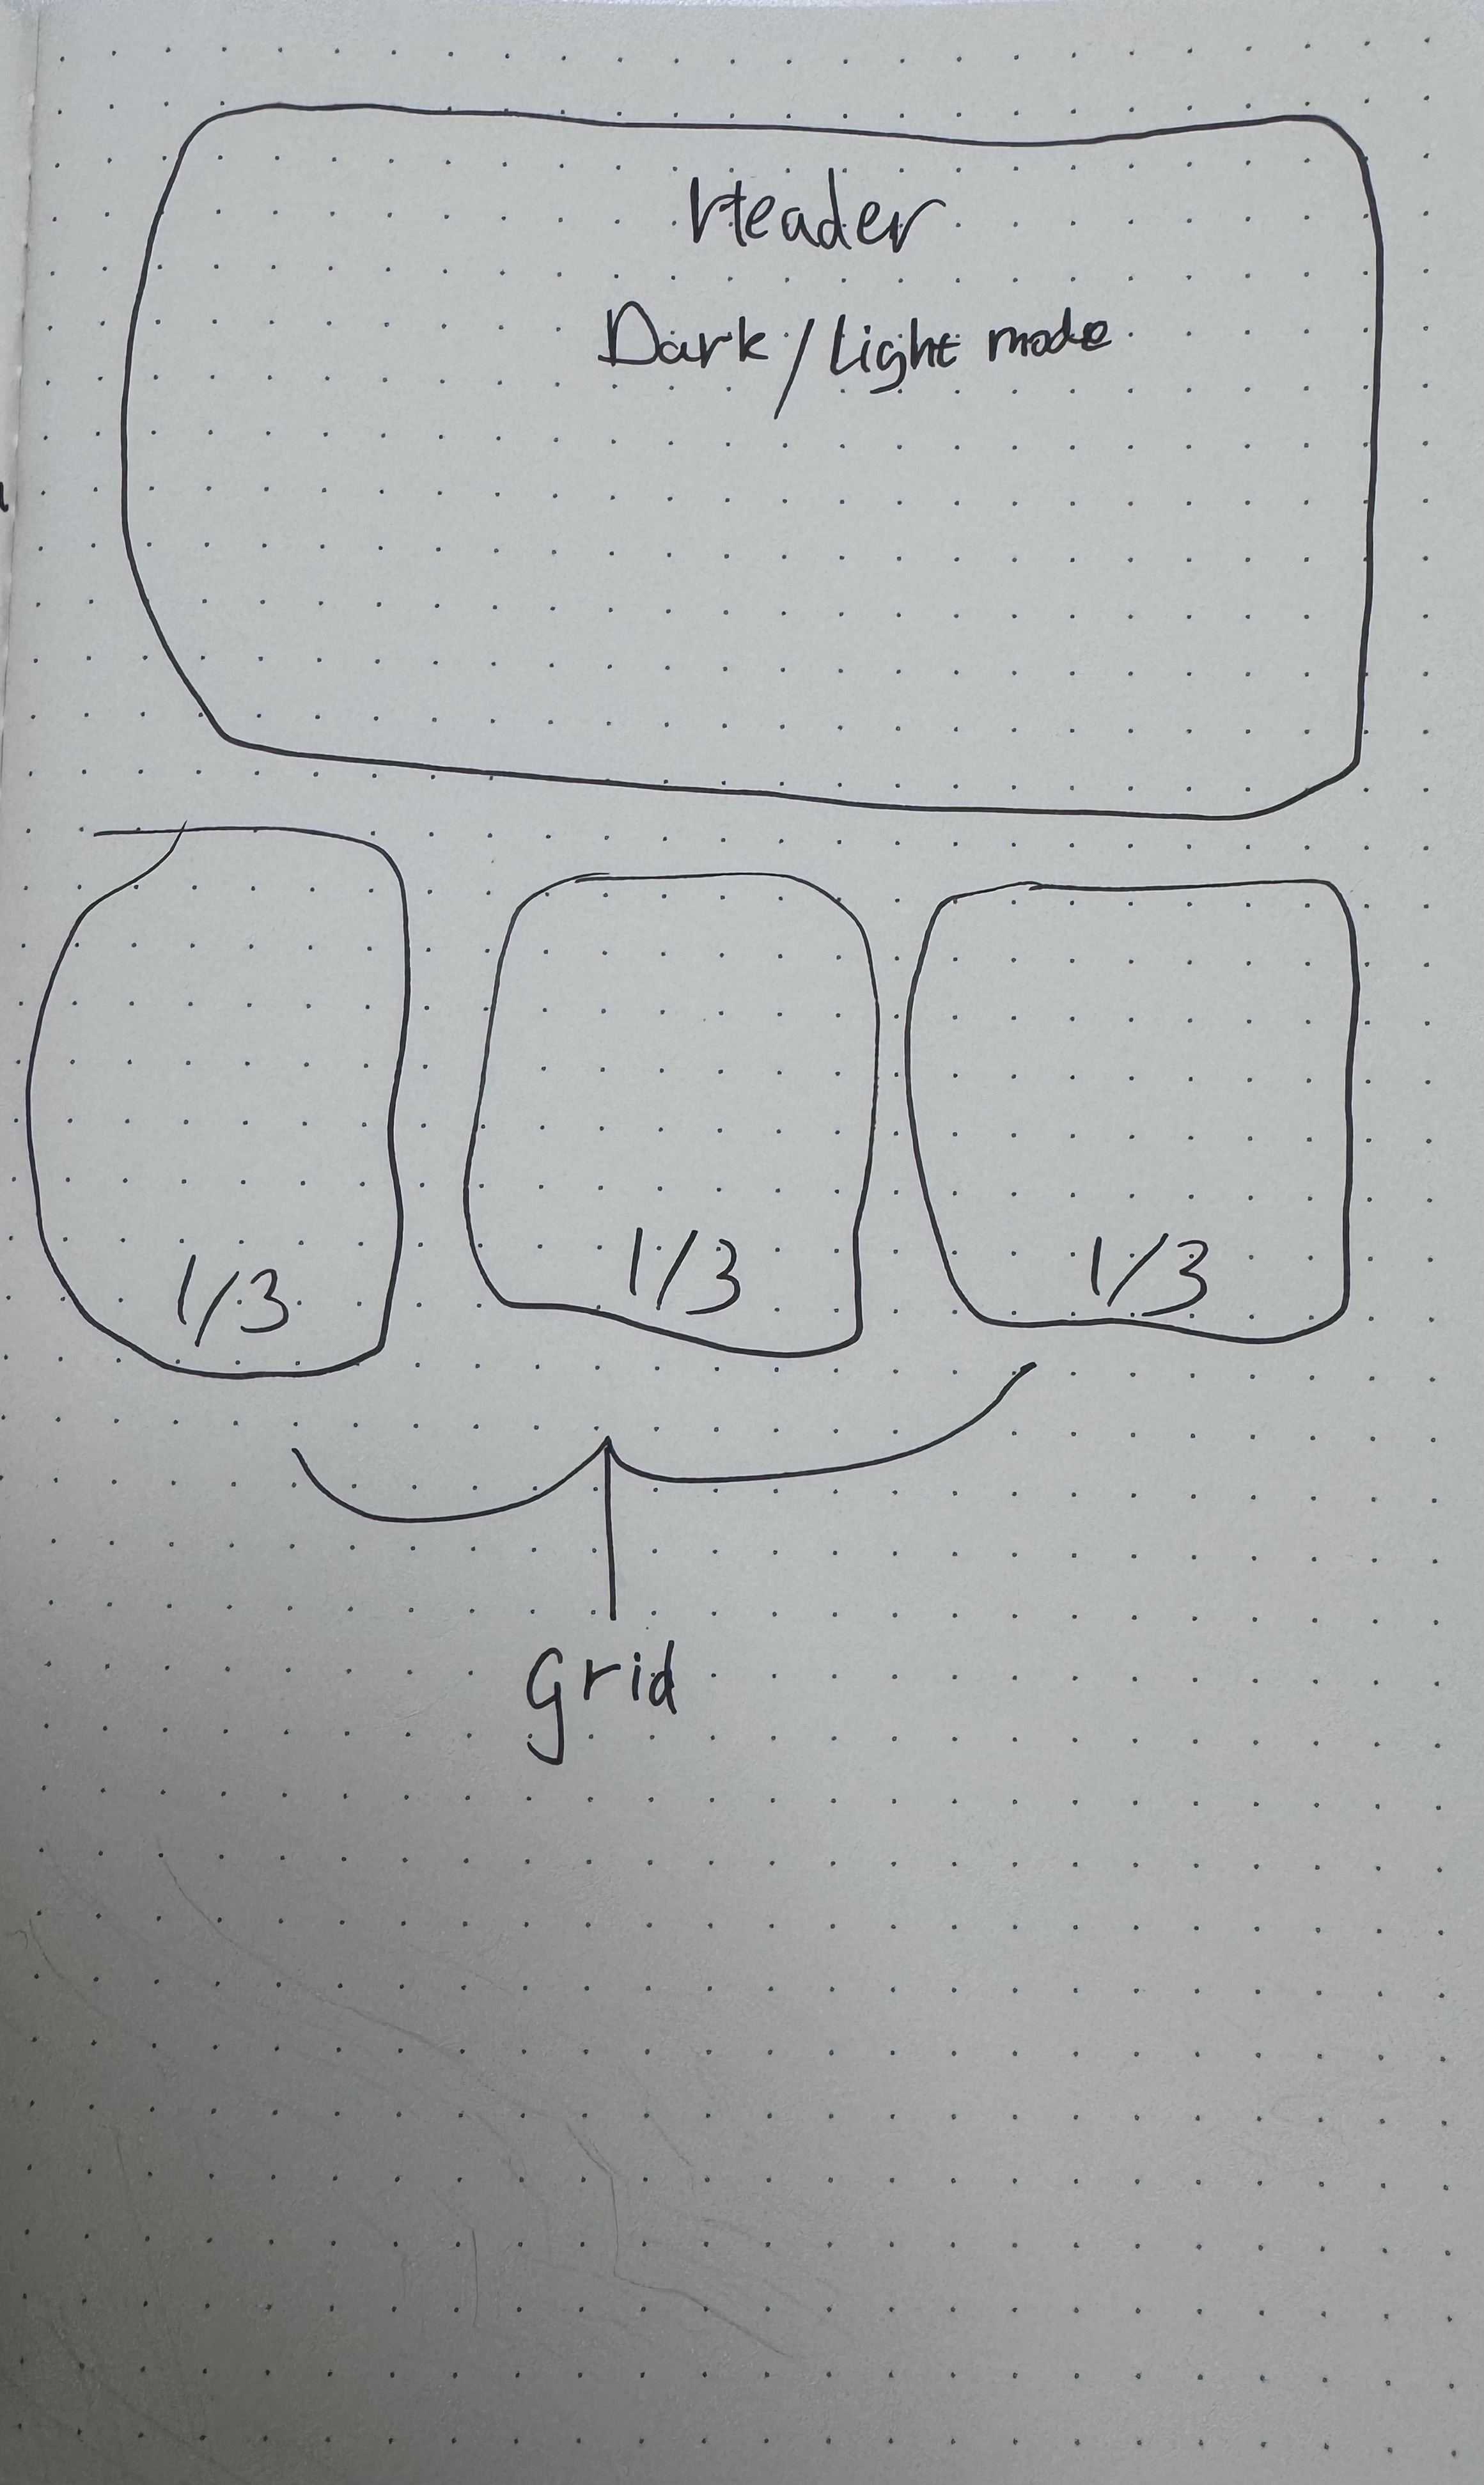 Header
Dark / Light mode
1/3
1/3
1/3
Grid